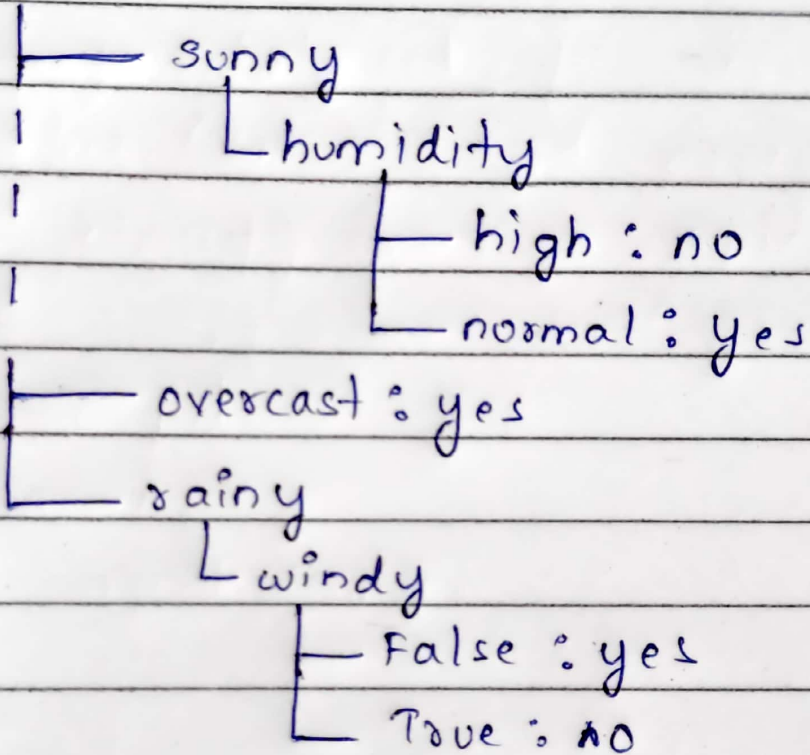 sunny
humidity
high : no
normal : yes
overcast : yes
rainy
windy
False : yes
True : no